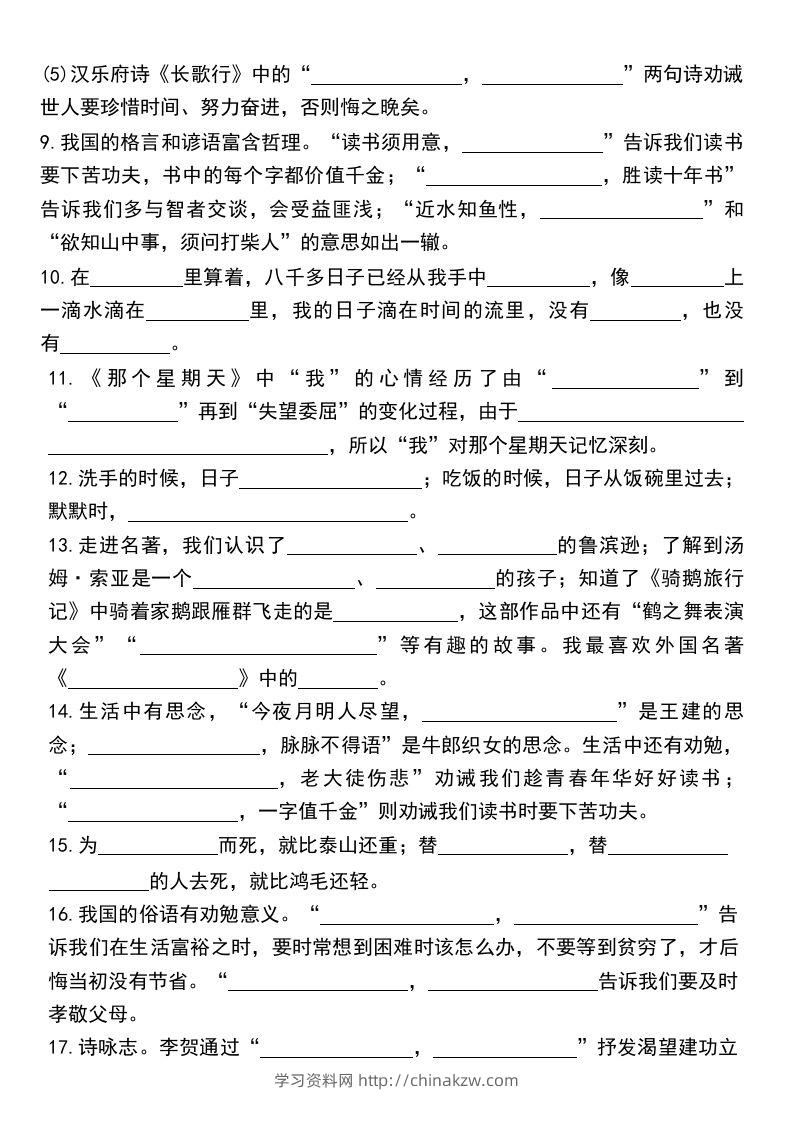 (5)汉乐府诗《长歌行》中的“______，______”两句诗劝诫
世人要珍惜时间、努力奋进，否则悔之晚矣。
9.我国的格言和谚语富含哲理。“读书须用意，______”告诉我们读书
要下苦功夫，书中的每个字都价值千金；“______，胜读十年书”
告诉我们多与智者交谈，会受益匪浅；“近水知鱼性，______”和
“欲知山中事，须问打柴人”的意思如出一辙。
10.在______里算着，八千多日子已经从我手中______，像______上
一滴水滴在______里，我的日子滴在时间的流里，没有______，也没
有______。
11.《那个星期天》中“我”的心情经历了由“______”到
“______”再到“失望委屈”的变化过程，由于______
______，所以“我”对那个星期天记忆深刻。
12.洗手的时候，日子______；吃饭的时候，日子从饭碗里过去；
默默时，______。
13.走进名著，我们认识了______、______的鲁滨逊；了解到汤
姆·索亚是一个______、______的孩子；知道了《骑鹅旅行
记》中骑着家鹅跟雁群飞走的是______，这部作品中还有“鹤之舞表演
大会”“______”等有趣的故事。我最喜欢外国名著
《______》中的______。
14.生活中有思念，“今夜月明人尽望，______”是王建的思
念；______，脉脉不得语”是牛郎织女的思念。生活中还有劝勉，
“______，老大徒伤悲”劝诫我们趁青春年华好好读书；
“______，一字值千金”则劝诫我们读书时要下苦功夫。
15.为______而死，就比泰山还重；替______，替______
______的人去死，就比鸿毛还轻。
16.我国的俗语有劝勉意义。“______，______”告
诉我们在生活富裕之时，要时常想到困难时该怎么办，不要等到贫穷了，才后
悔当初没有节省。“______，______告诉我们要及时
孝敬父母。
17.诗咏志。李贺通过“______，______”抒发渴望建功立
学习资料网 http://chinakzw.com